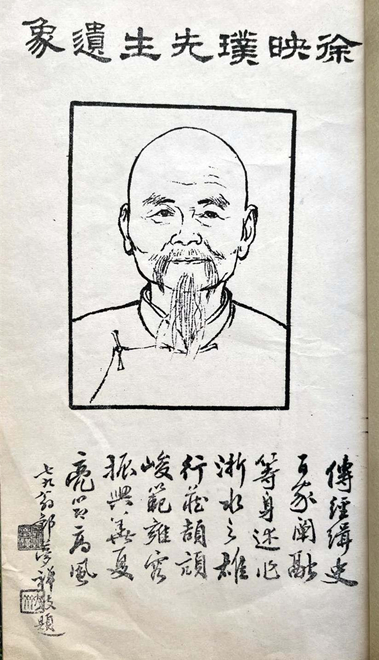 徐映璞先生遺象
傳經緝史
百家闡融
等身述作
浙水之雄
行藏頡頏
峻範雍容
振興華夏
亮節高風
七九翁郭敬題